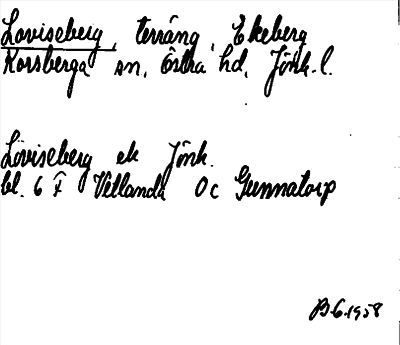 Loviseberg, terräng, Ekeberg
Korsberga sn. Östra hd. Jönk. l.
Loviseberg ek Jönk.
bl. 6 F Vetlanda Oc Gunnatorp
B.6.1958